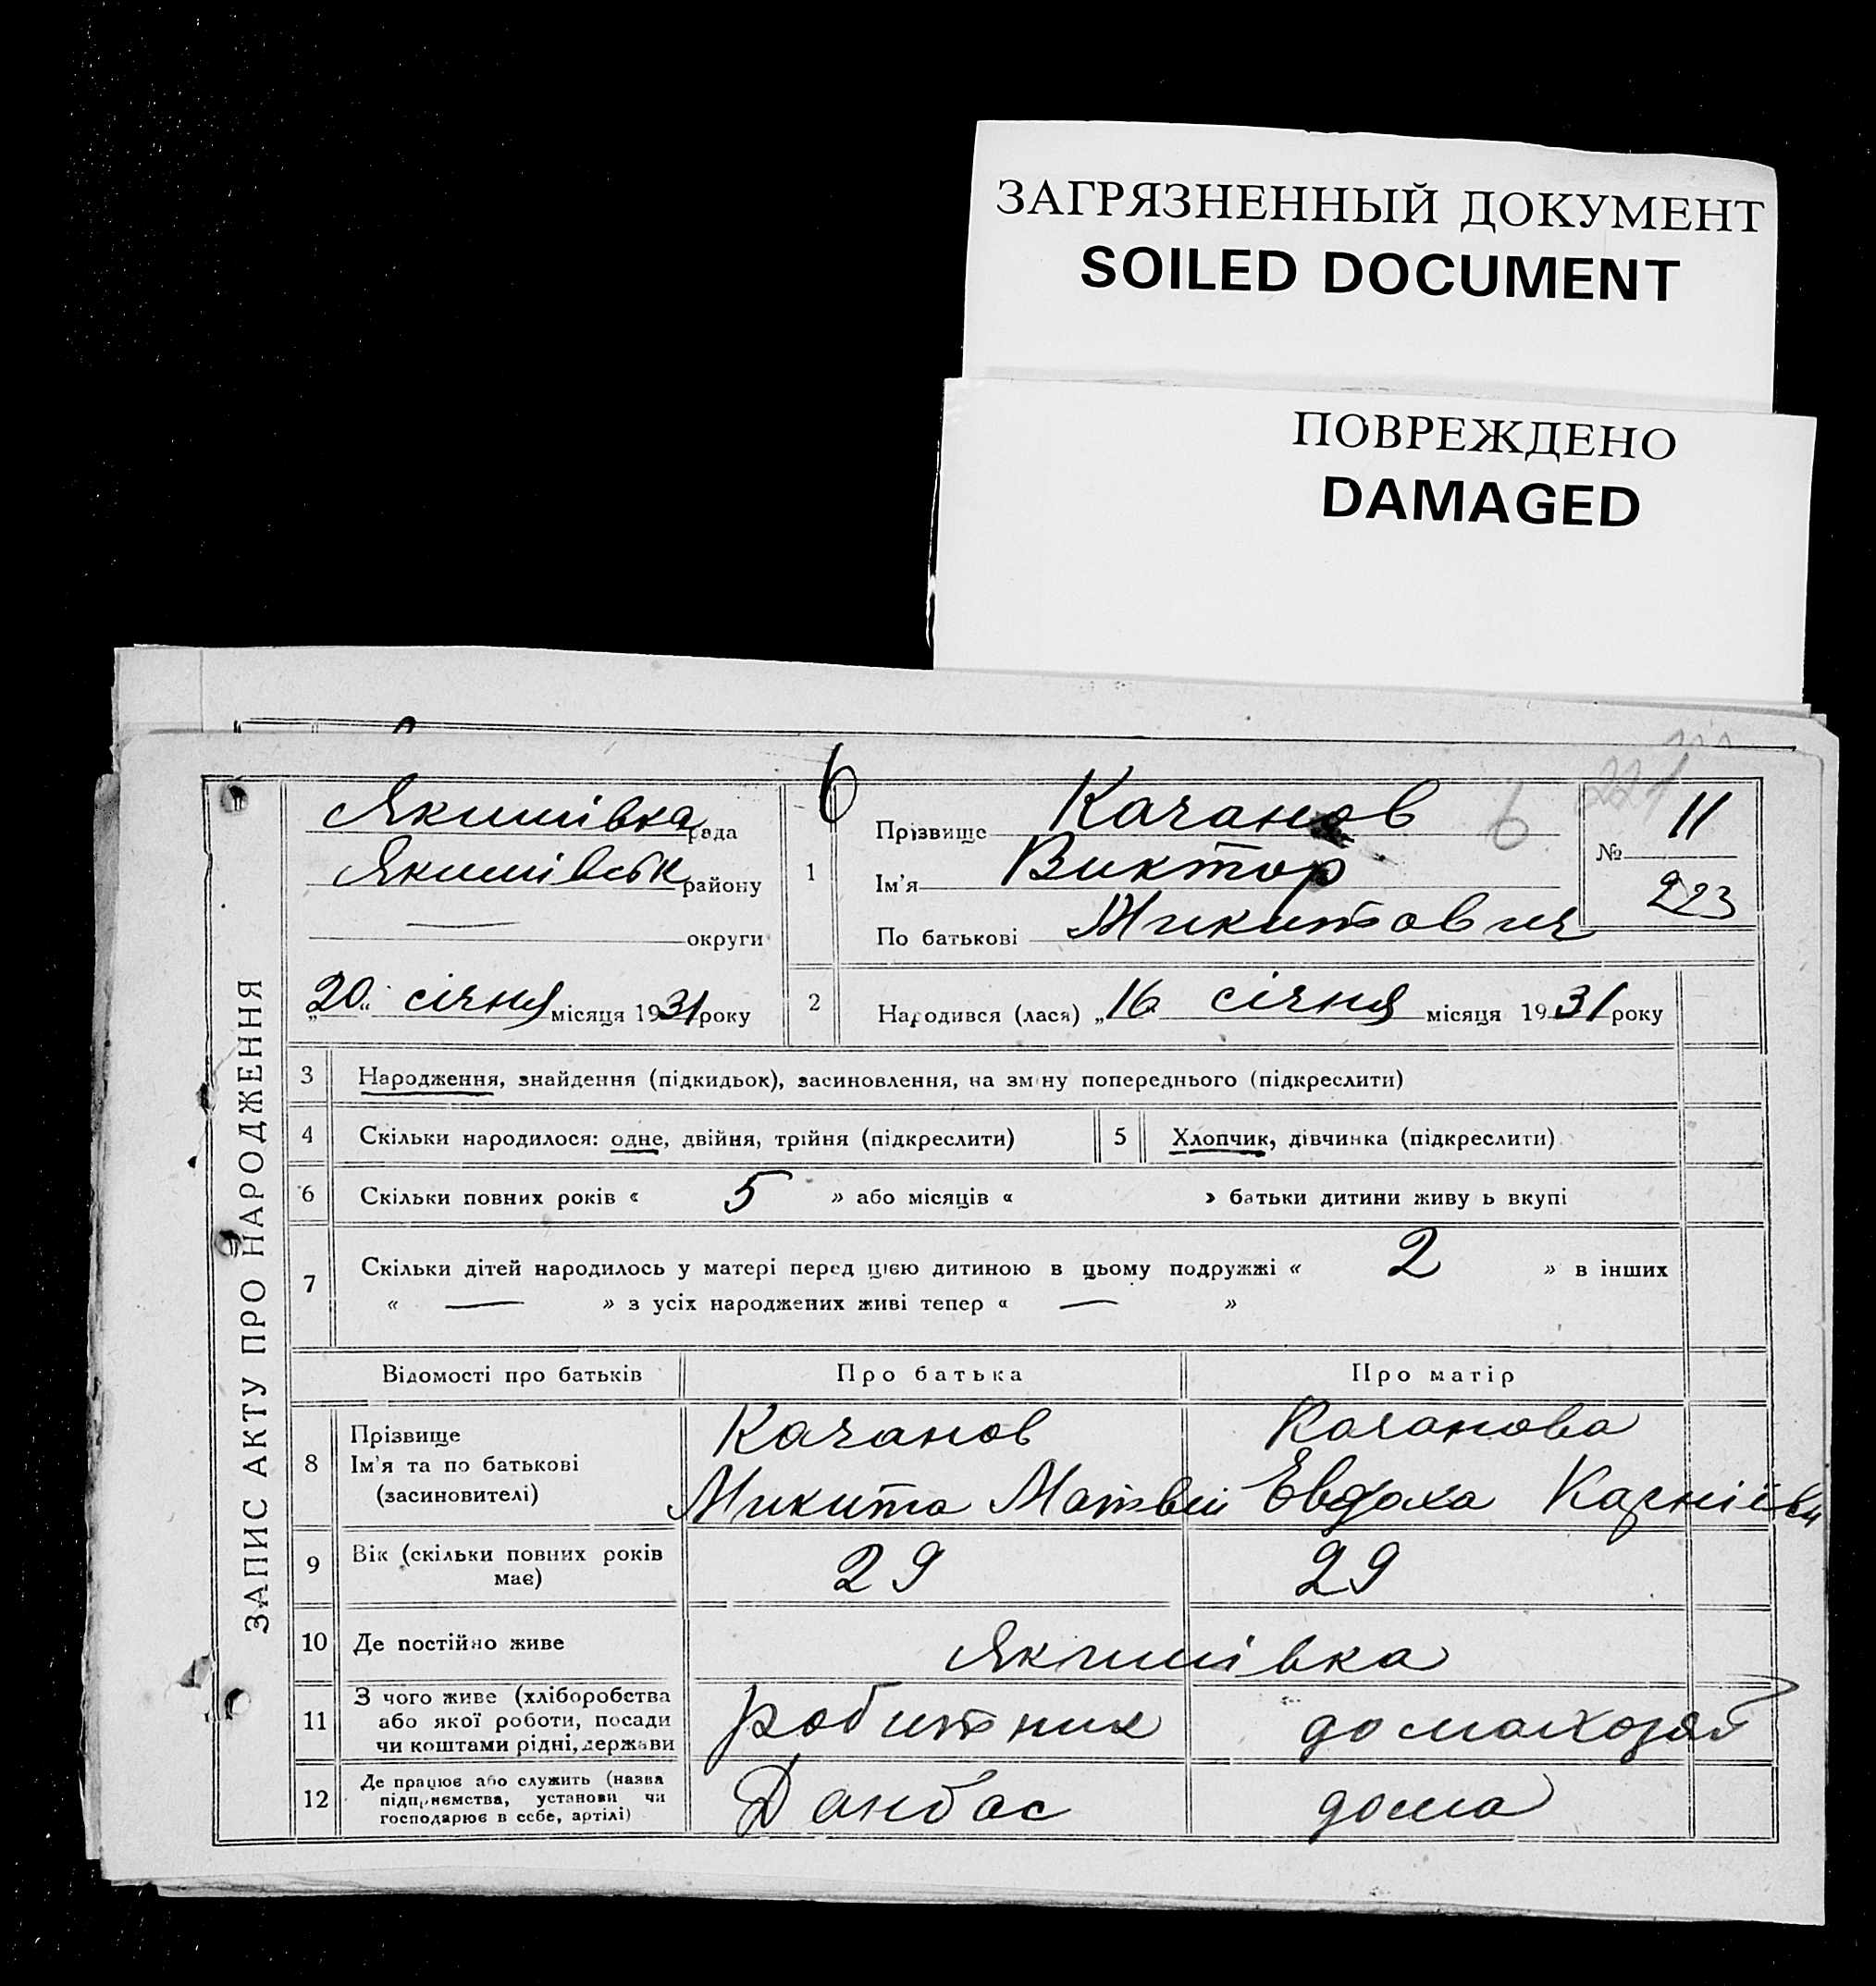 ЗАГРЯЗНЕННЫЙ ДОКУМЕНТ
SOILED DOCUMENT
ПОВРЕЖДЕНО
DAMAGED
ЗАПИС АКТУ ПРО НАРОДЖЕННЯ
6
221
Якимівка рада
Якимівськ району
— округи
„20“ січня місяця 1931 року
1 Прізвище Качанов 6
Ім'я Виктор
По батькові Микитович
№ 11
223
2 Народився (лася) „16 січня місяця 1931 року
3 Народження, знайдення (підкидьок), засиновлення, на зміну попереднього (підкреслити)
4 Скільки народилося: одне, двійня, трійня (підкреслити) 5 Хлопчик, дівчинка (підкреслити)
6 Скільки повних років « 5 » або місяців « » батьки дитини живуть вкупі
7 Скільки дітей народилось у матері перед цією дитиною в цьому подружжі « 2 » в інших
« — » з усіх народжених живі тепер « — »
Відомості про батьків Про батька Про матір
8 Прізвище Качанов Качанова
Ім'я та по батькові
(засиновителі) Микита Матвій Евдоха Карніївн
9 Вік (скільки повних років
має) 29 29
10 Де постійно живе Якимівка
11 З чого живе (хліборобства
або якої роботи, посади
чи коштами рідні, держави робитник домахозяй
12 Де працює або служить (назва
підприємства, установи чи
господарює в себе, артілі) Данбас дома